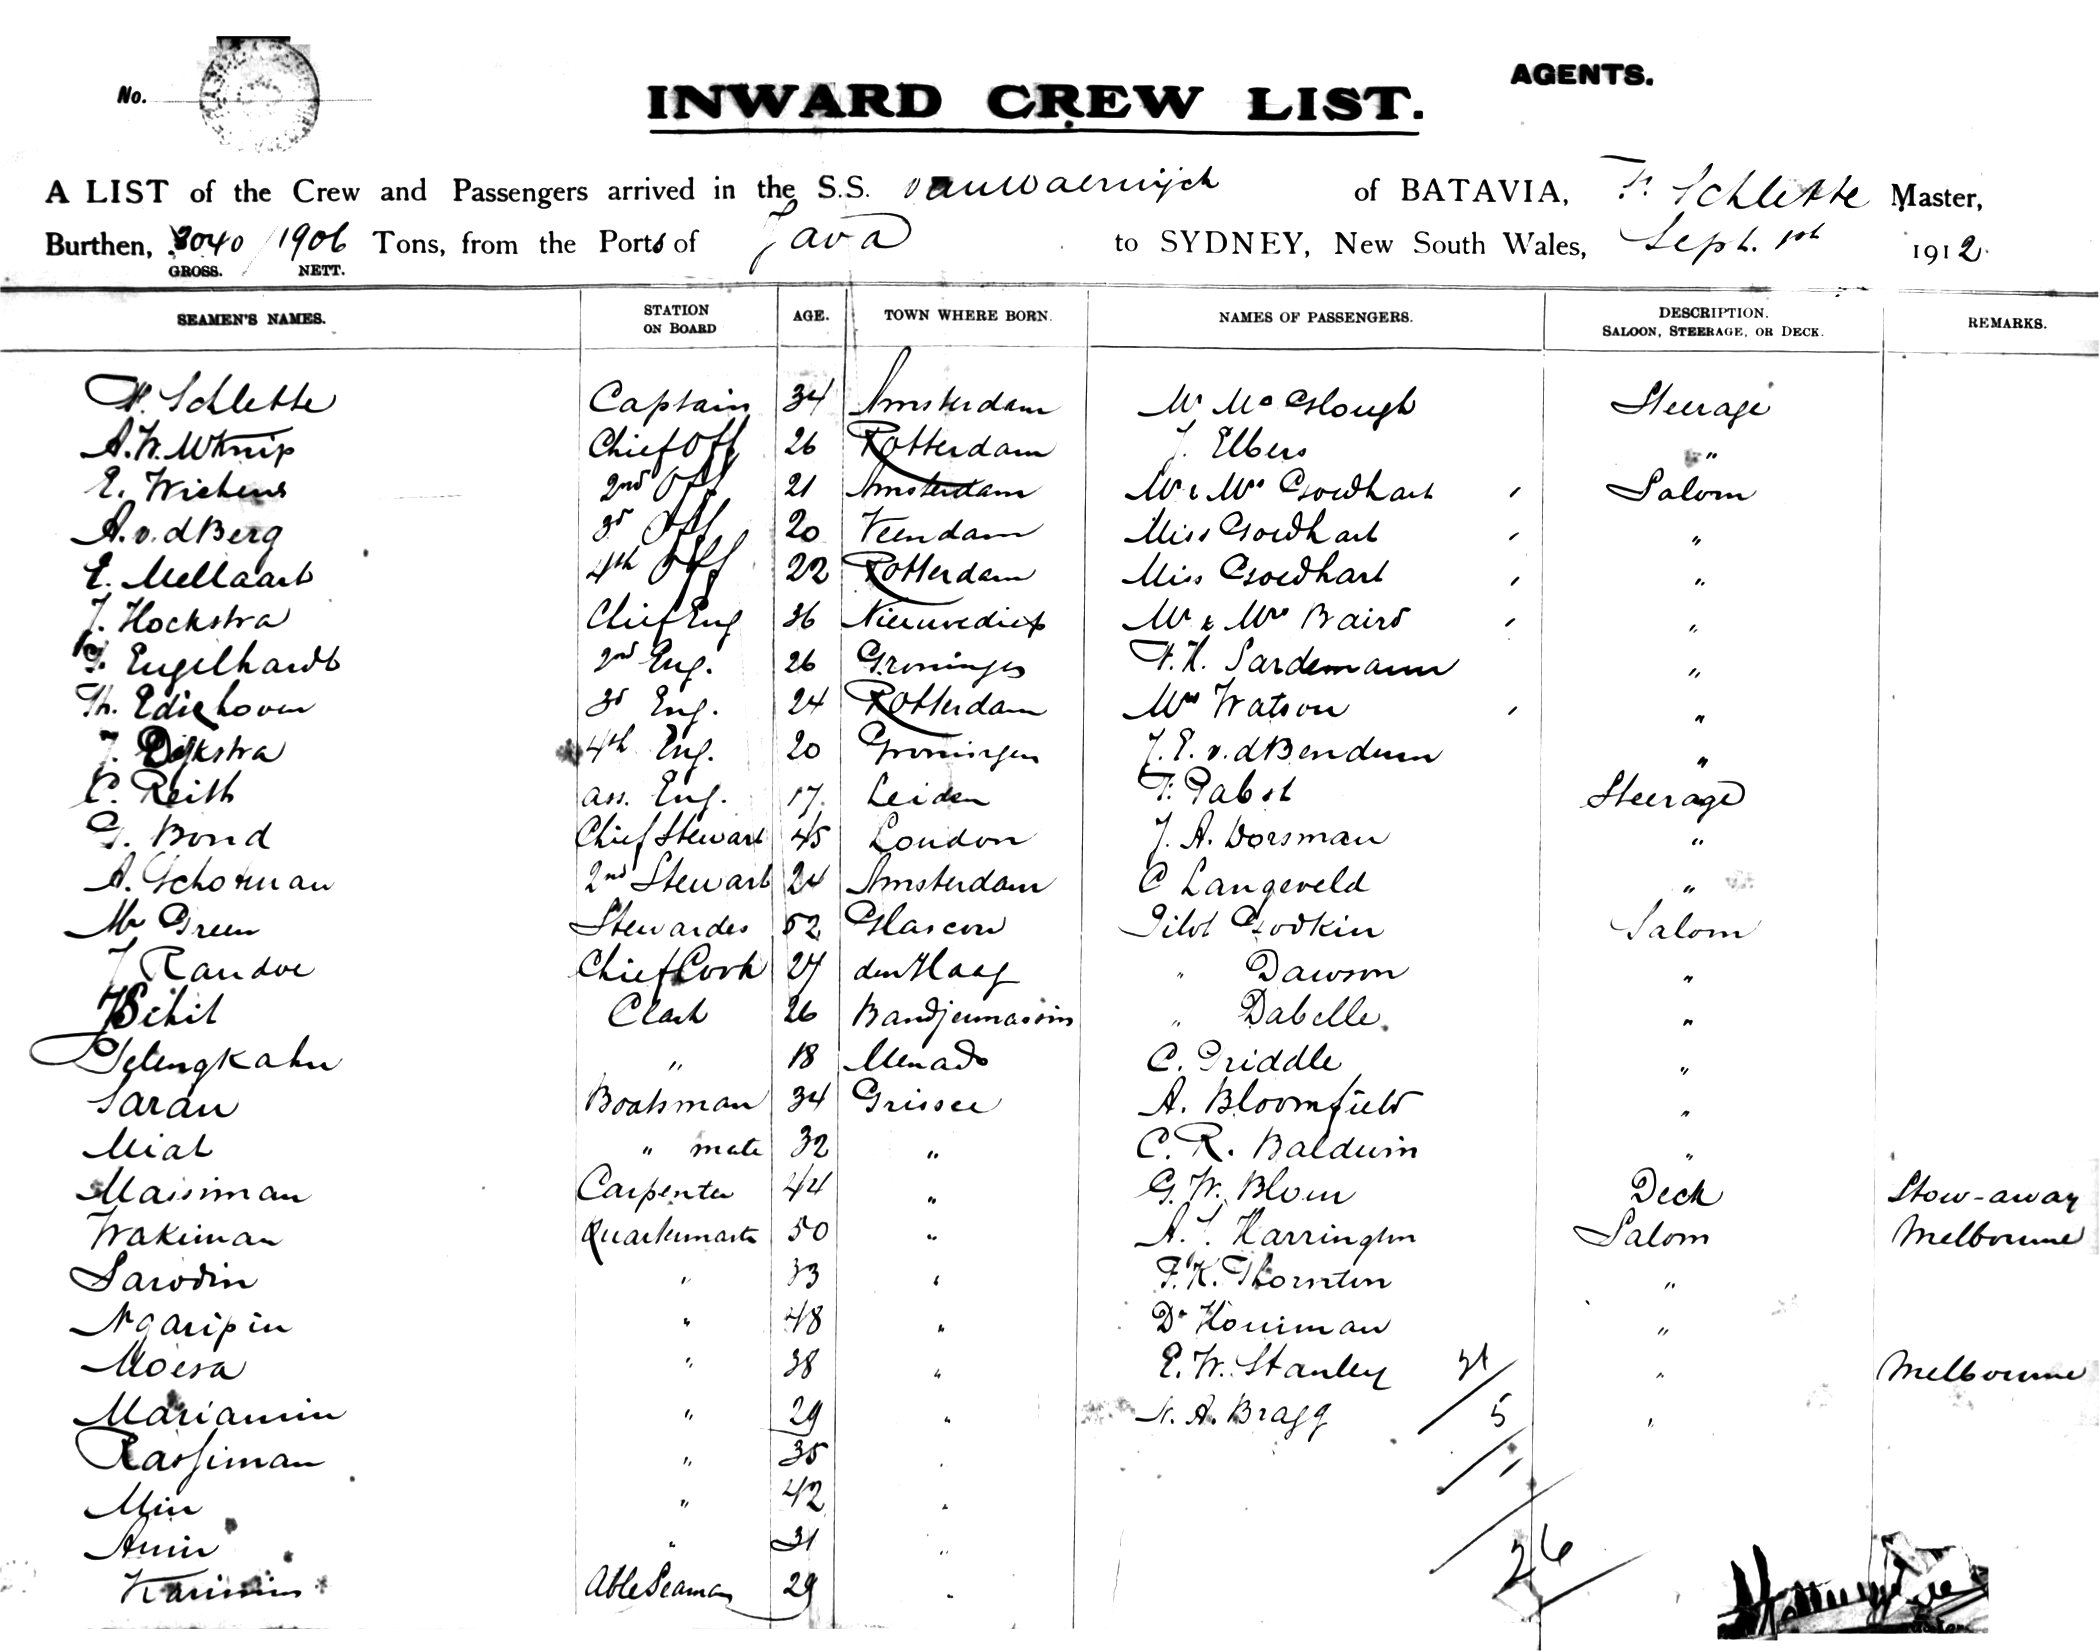 No.
AGENTS.
INWARD CREW LIST.
A LIST of the Crew and Passengers arrived in the S.S. van Waerwijck of BATAVIA, F. Schlette Master,
Burthen, 3040 / 1906 Tons, from the Ports of Java to SYDNEY, New South Wales, Sept. 1st 1912.
GROSS. NETT.
SEAMEN'S NAMES. STATION ON BOARD AGE. TOWN WHERE BORN. NAMES OF PASSENGERS. DESCRIPTION. SALOON, STEERAGE, OR DECK. REMARKS.
Schlette Captain 34 Amsterdam Mr Mc Glough Steerage
A.W. Chief Off 26 Rotterdam J. Elbers "
E. Wichens 2nd Off 21 Amsterdam Mr & Mrs Goedhart ' Saloon
A. v. d Berg 3d Off 20 Veendam Miss Goedhart ' "
E. Mellaart 4th Off 22 Rotterdam Miss Goedhart ' "
J. Hoekstra Chief Eng 36 Nieuwediep Mr & Mrs Baird ' "
Engelhardt 2nd Eng. 26 Groningen Sardemann "
Th. Ediehoven 3d Eng. 24 Rotterdam Mrs Watson ' "
J. Dijkstra 4th Eng. 20 Groningen J. E. v. d Bendum "
C. Reith ass. Eng. 17. Leiden F. Pabst Steerage
G. Bond Chief Stewart 45 London J. A. Dorsman "
A. Schotman 2nd Stewart 24 Amsterdam C Langeveld "
Mr Green Stewardes 52 Glascow Pilot Godkin Saloon
J Randoe Chief Cook 27 den Haag " Dawson "
Clark 26 Bandjermassin " Dabelle. "
Pelengkahu " 18 Menado C. Griddle "
Saran Boatsman 34 Grissee A. Bloomfield "
Miat " mate 32 " C. R. Baldwin "
Massiman Carpenter 44 " G. W. Blom Deck Stow-away
Wakiman Quartermaste 50 " A. J. Harrington Saloon Melbourne
Sarodin " 33 " F. K. Thornton "
Ngaripin " 48 " Dr Houiman "
Moesa " 38 " E. W. Stanley 31 " Melbourne
Mariamin " 29 " N. A. Bragg 5 "
Rassiman " 35 "
Min " 42 "
Amin " 31 "
Able Seaman 29 "
26